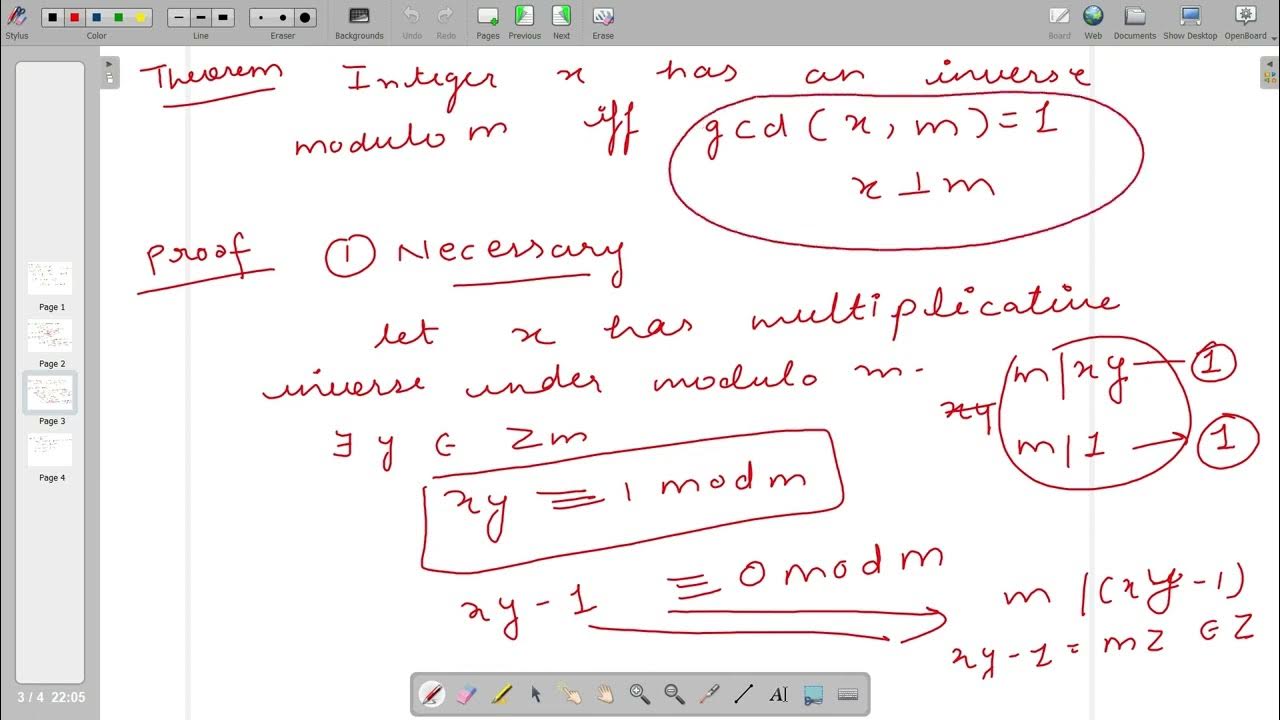 Stylus
Color
Line
Eraser
Backgrounds
Undo
Redo
Pages
Previous
Next
Erase
Board
Web
Documents
Show Desktop
OpenBoard
Theorem Integer x has an inverse
modulo m iff gcd(x, m) = 1
x ⊥ m
Proof ① Necessary
let x has multiplicative
inverse under modulo m.
m | xy — ①
m | 1 → ①
∃ y ∈ Zm
xy ≡ 1 mod m
xy - 1 ≡ 0 mod m
m | (xy - 1)
xy - 1 = mz ∈ Z
Page 1
Page 2
Page 3
Page 4
3 / 4 22:05
AI